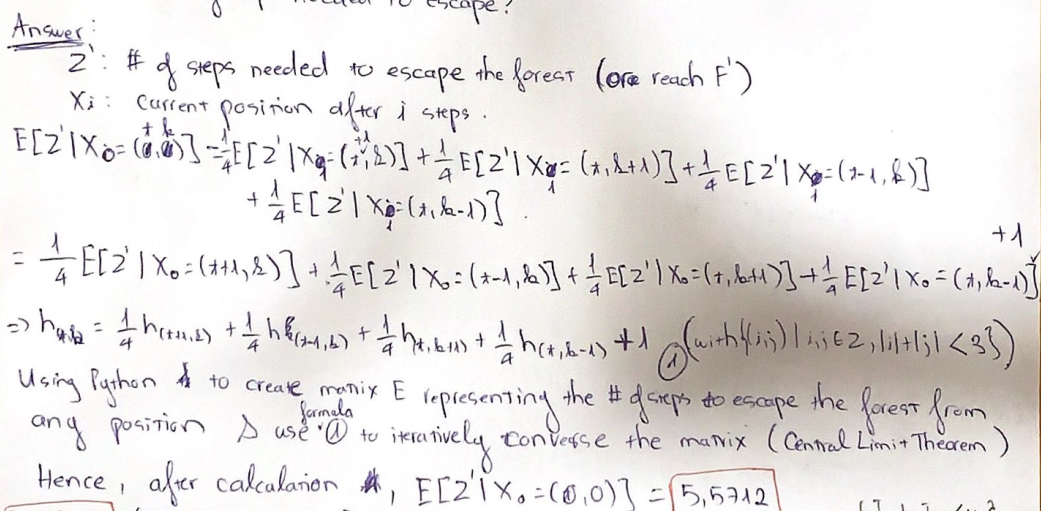 needed to escape?
Answer:
Z': # of steps needed to escape the forest (ore reach F')
Xi: Current position after i steps.
E[Z'|X0=(t,k)] = 1/4 E[Z'|X1=(t+1,k)] + 1/4 E[Z'|X1=(t,k+1)] + 1/4 E[Z'|X1=(t-1,k)]
+ 1/4 E[Z'|X1=(t,k-1)].
+1
= 1/4 E[Z'|X0=(t+1,k)] + 1/4 E[Z'|X0=(t-1,k)] + 1/4 E[Z'|X0=(t,k+1)] + 1/4 E[Z'|X0=(t,k-1)]
=> ht,k = 1/4 h(t+1,k) + 1/4 h(t-1,k) + 1/4 h(t,k+1) + 1/4 h(t,k-1) + 1 ① (with {(i,j) | i,j ∈ Z, |i|+|j| < 3})
Using Python to create matrix E representing the # of steps to escape the forest from
any position & use formula ① to iteratively converse the matrix (Central Limit Theorem)
Hence, after calculation, E[Z'|X0=(0,0)] = 5,5712